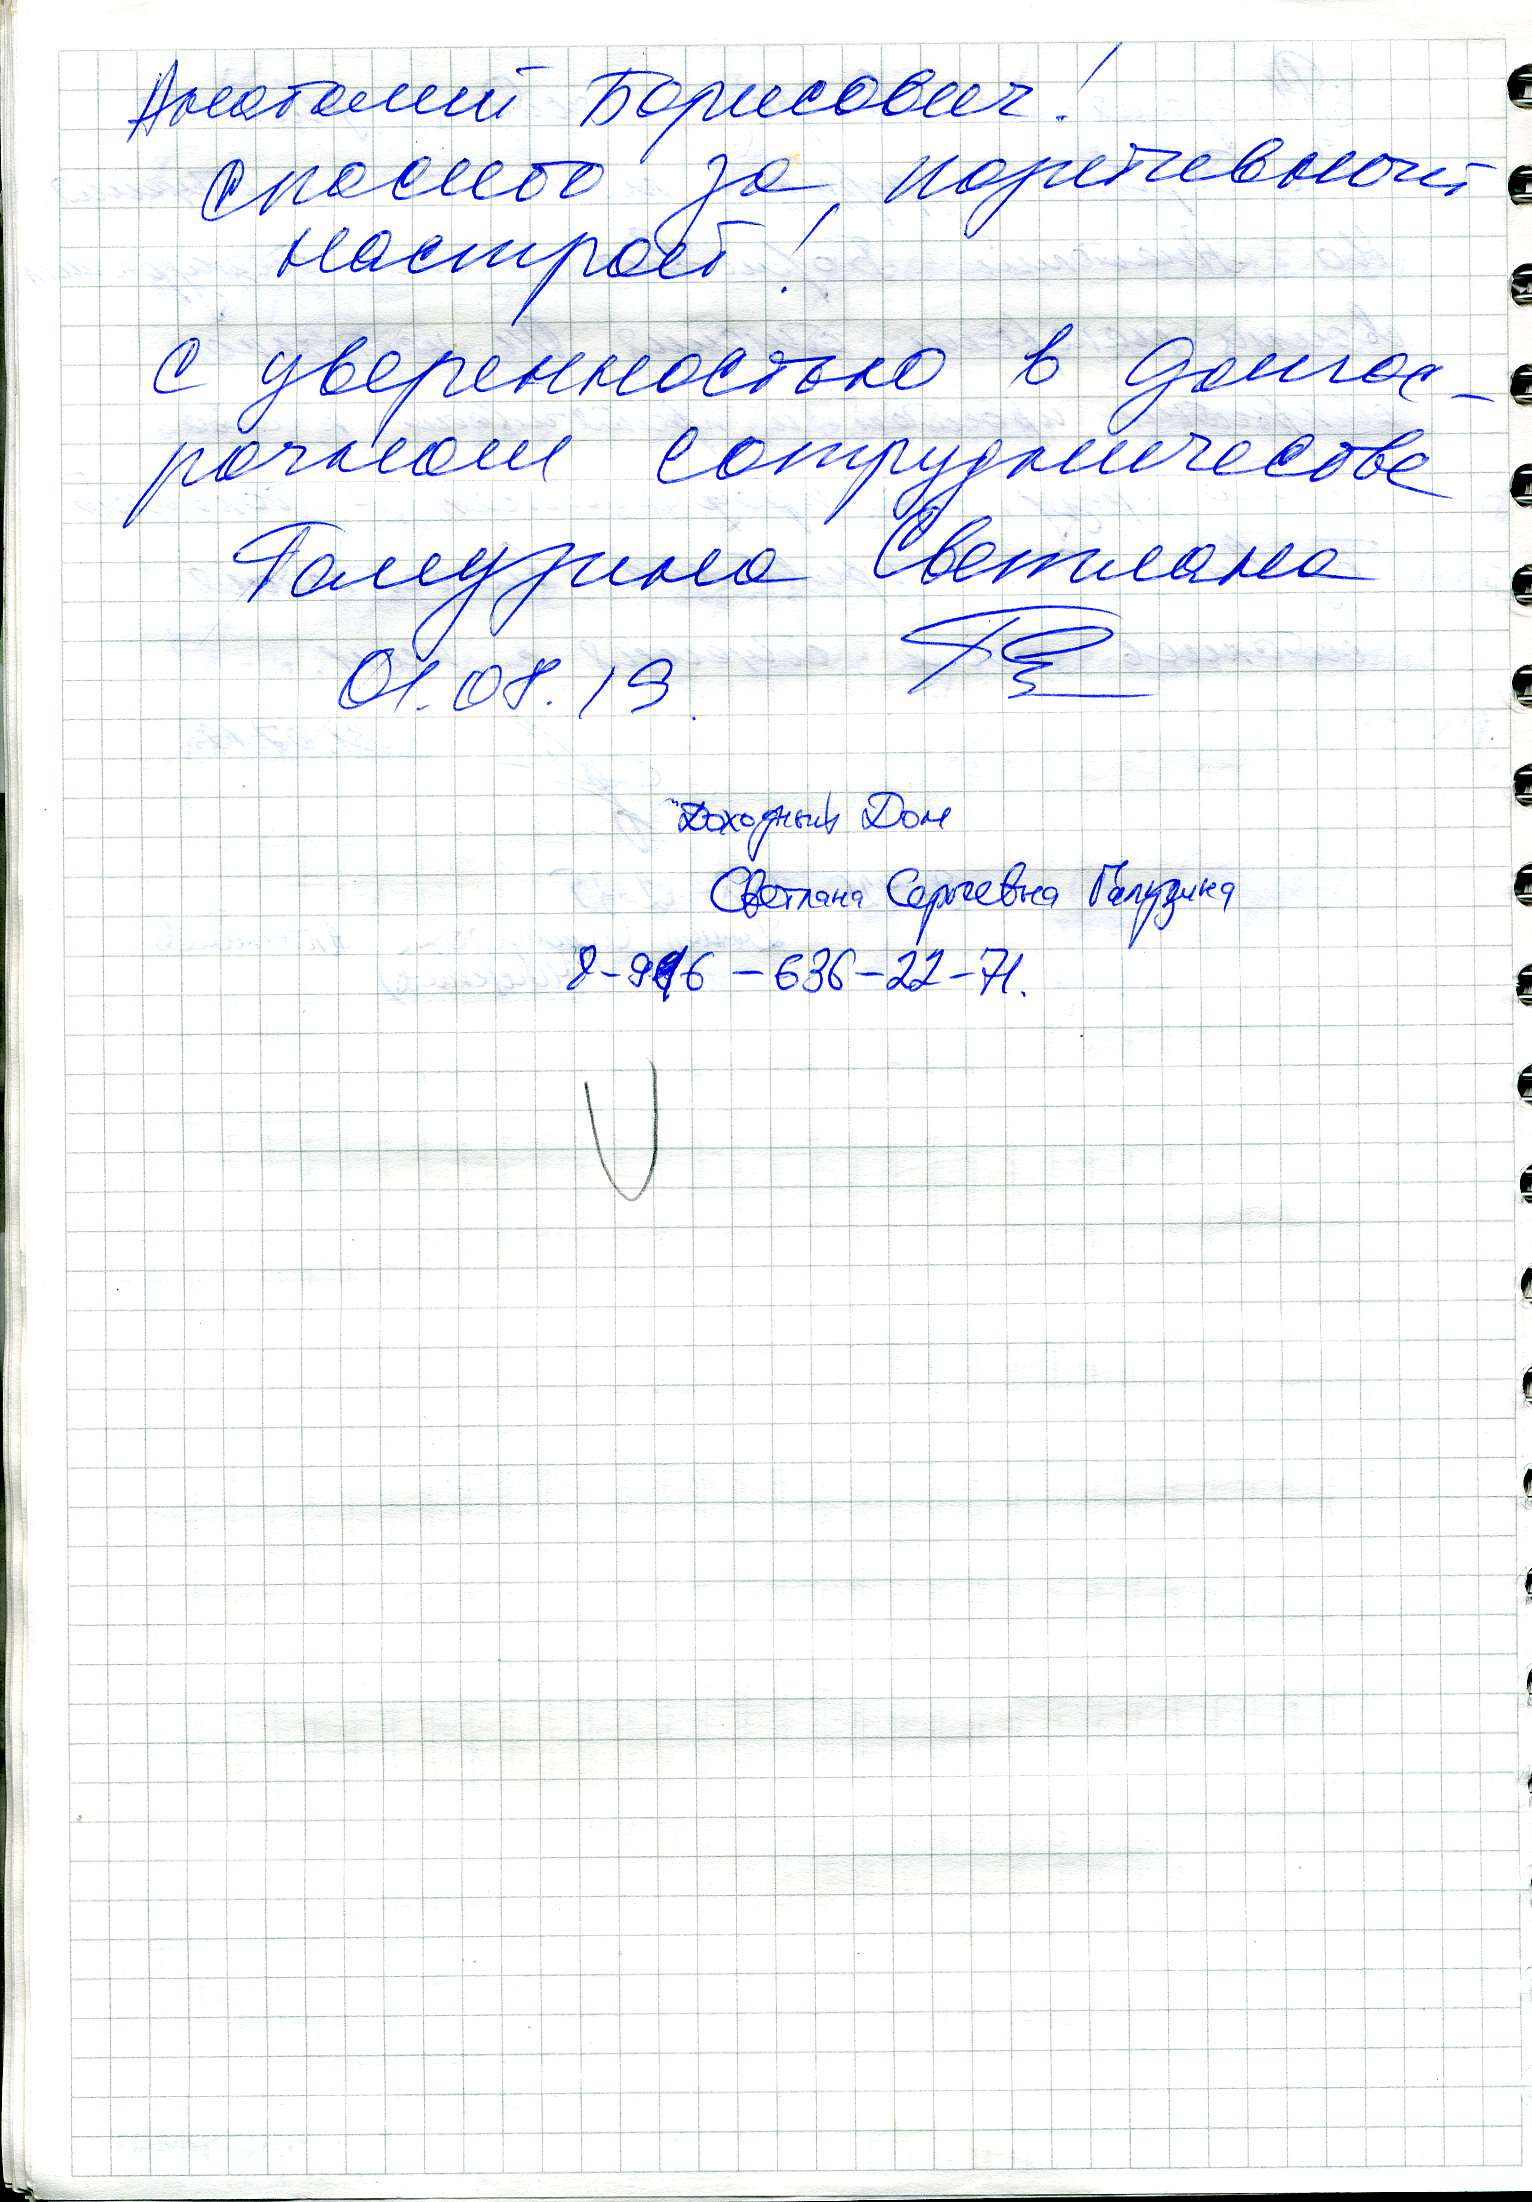 Анатолий Борисович!
Спасибо за позитивный
настрой!
С уверенностью в долгос-
рочном сотрудничестве
Галузина Светлана
01.08.19.
"Доходный Дом
Светлана Сергеевна Галузина
8-916-636-22-71.